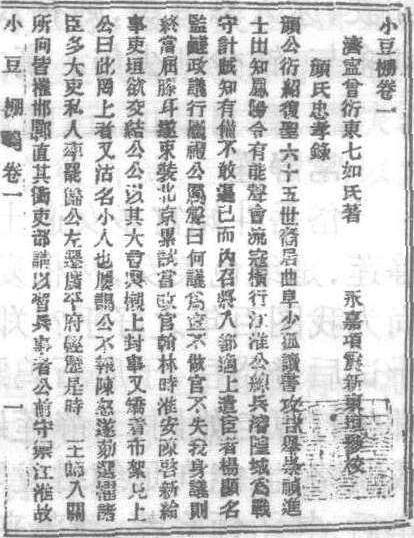 小豆棚卷一
濟寧曾衍東七如氏著　永嘉項震新東垣參校
顏氏忠孝錄
顏公衍紹復聖六十五世裔居曲阜少孤讀書攻苦舉崇禎進
士出知鳳陽令有能聲會流寇橫行江淮公練兵濬隍城為戰
守計賊知有備不敢逼已而內召將入都適上遣臣者楊顯名
監鹺政議行廳禮公厲聲曰何議為寧不做官不失我身議則
終當屈膝耳遂束裝北京畢試當改官翰林時淮安陳啟新給
事吏垣欲交結公公以其大言輿櫬上封事又矯著布絮見上
公曰此罔上者又沽名小人也屢謁公不報陳怒遂劾選擢諸
臣多大吏私人率罷歸公左遷廣平府經歷是時　王師入關
所向皆權邯鄲直其衝吏部議以習兵事者公前守禦江淮故
小豆棚　卷一　一